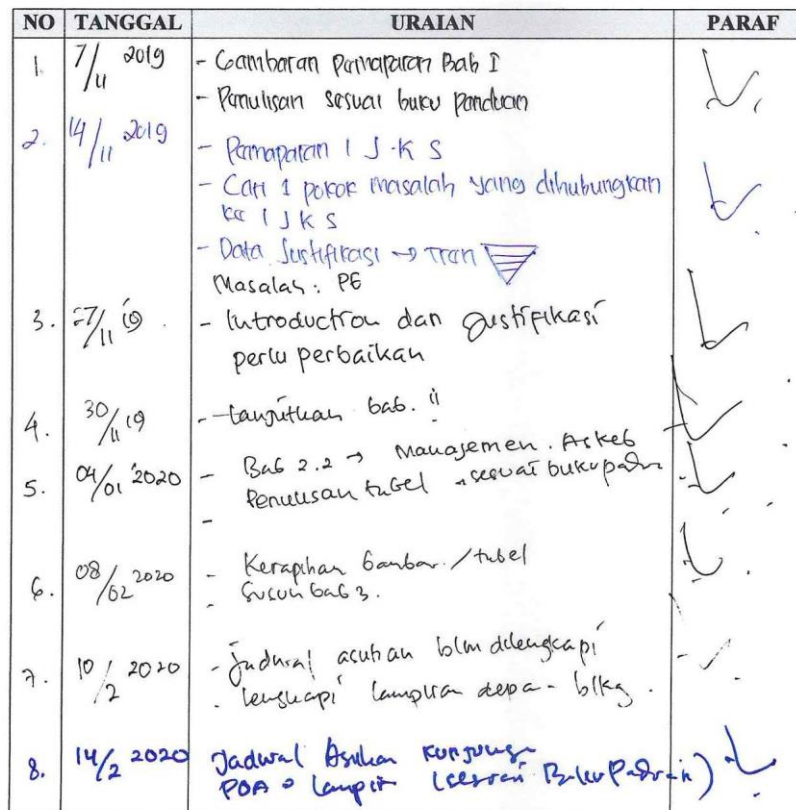 NO TANGGAL URAIAN PARAF
1. 7/11 2019 - Gambaran Pemaparan Bab I
- Penulisan sesuai buku panduan
2. 14/11 2019
- Pemaparan I J K S
- Cari 1 pokok masalah yang dihubungkan
ke I J K S
- Data Justifikasi → Tren
Masalah : PE
3. 27/11 19 - Introduction dan Justifikasi
perlu perbaikan
4. 30/11 19 - Lanjutkan bab. II
5. 04/01 2020 - Bab 2.2 → Manajemen. Askeb
Penulisan tabel sesuai buku
-
6. 08/02 2020 - Kerapihan Gambar / tabel
- Susun bab 3.
7. 10/2 2020 - Jadwal asuhan blm dilengkapi
- lengkapi lampiran depa - blkg.
8. 14/2 2020 Jadwal Asuhan kunjungan
POA lampir (sesuai Buku